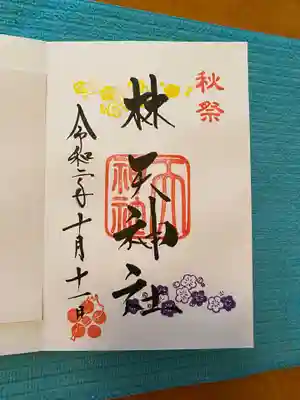 秋祭
林天神社
令和二年十月十一日